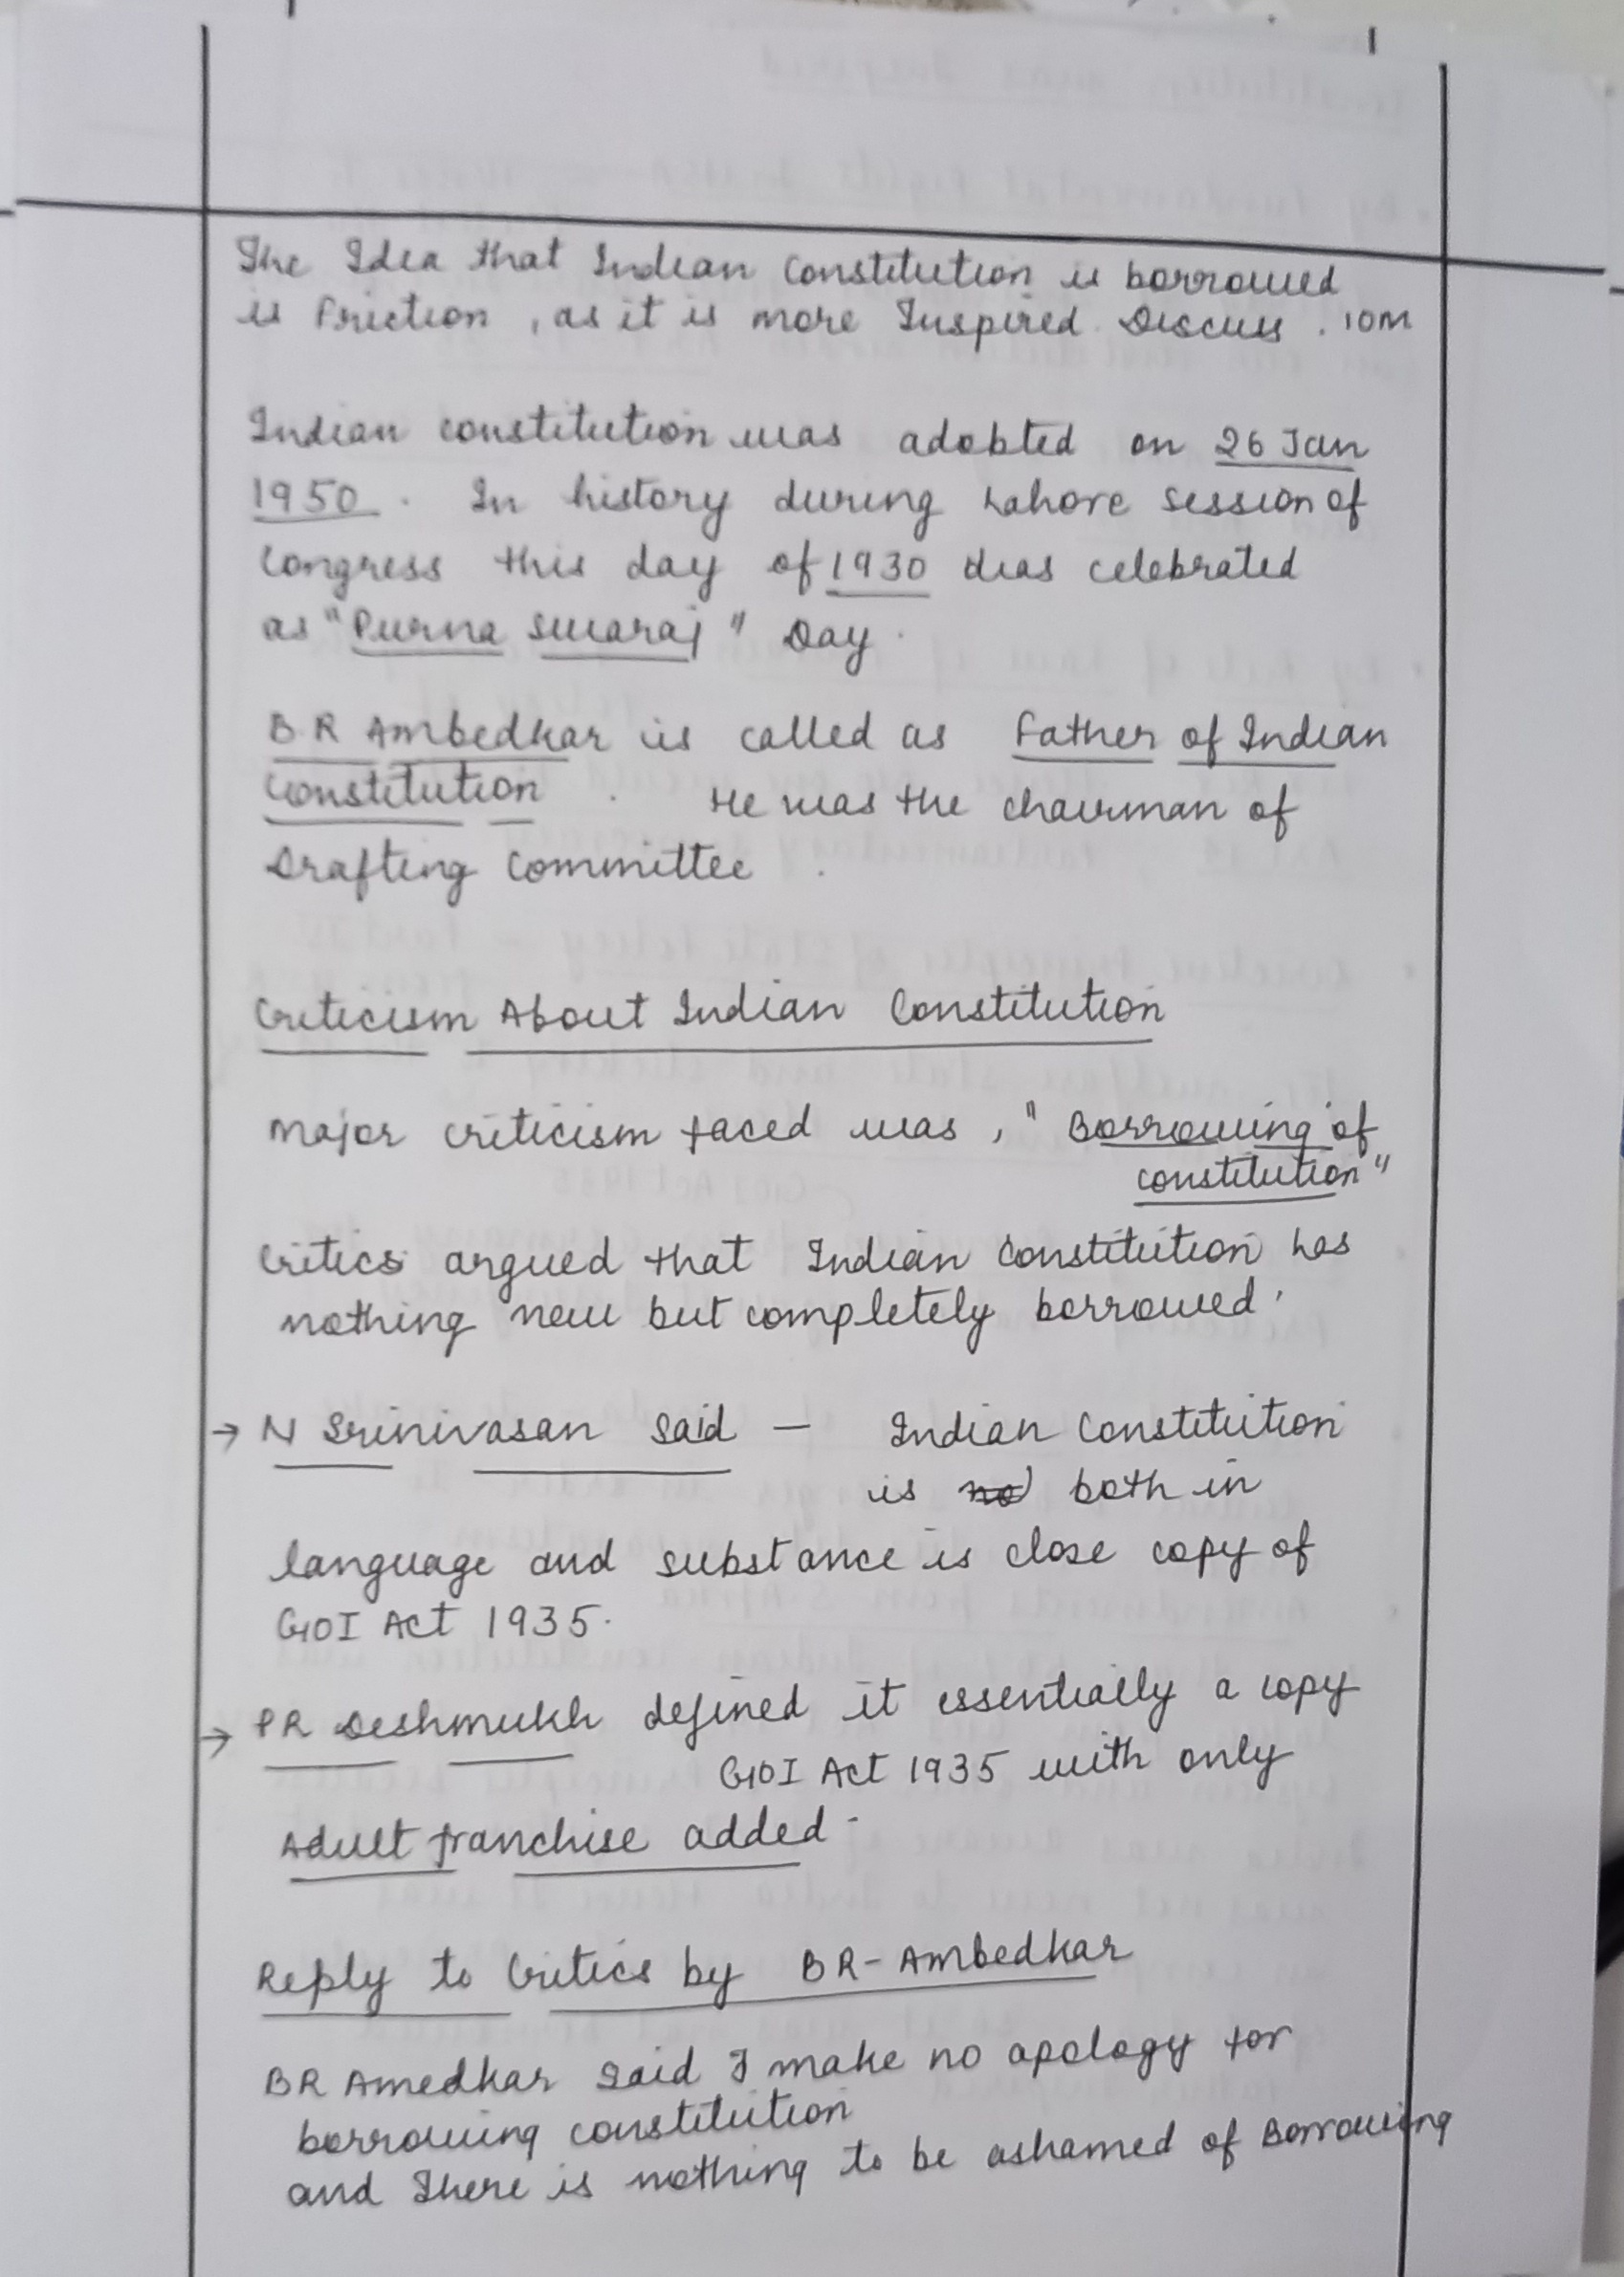 The Idea that Indian Constitution is borrowed
is Friction, as it is more Inspired. Discuss. 10M
Indian constitution was adobted on 26 Jan
1950. In history during Lahore session of
Congress this day of 1930 was celebrated
as "Purna Swaraj" Day.
BR Ambedkar is called as Father of Indian
Constitution. He was the chairman of
Drafting Committee.
Criticism About Indian Constitution
Major criticism faced was, "Borrowing of
constitution"
Critics argued that Indian Constitution has
nothing new but completely borrowed.
→ N Srinivasan said - Indian Constitution
is no both in
language and substance is close copy of
GOI Act 1935.
→ PR Deshmukh defined it essentially a copy
GOI Act 1935 with only
Adult franchise added.
Reply to Critics by BR-Ambedkar
BR Amedkar said I make no apology for
borrowing constitution
and there is nothing to be ashamed of Borrowing